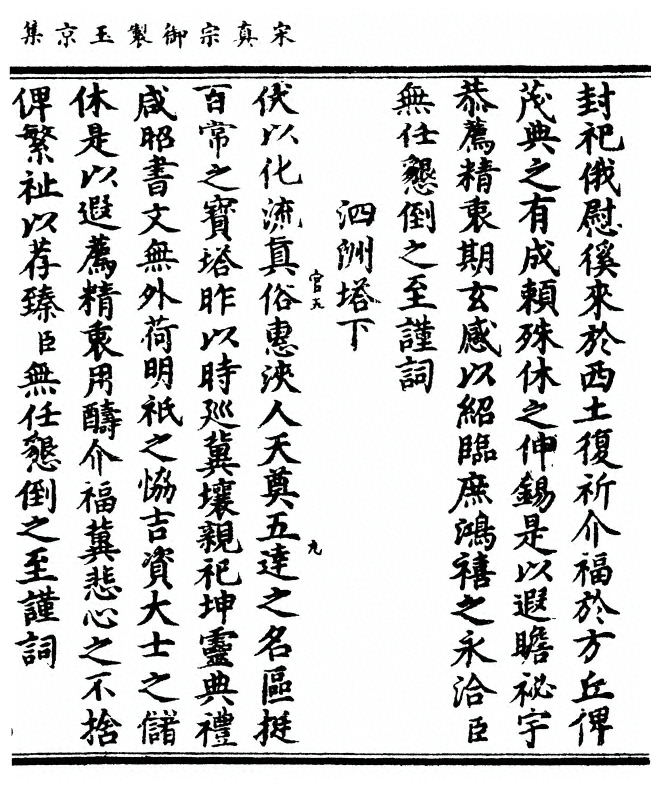 宋真宗御製玉京集
封祀俄慰徯來於西土復祈介福於方丘俾
茂典之有成頼殊休之伸錫是以遐瞻祕宇
恭薦精衷期玄感以紹臨庶鴻禧之永洽臣
無任懇倒之至謹詞
泗洲塔下
伏以化流真俗惠浹人天奠五達之名區挺
百常之寶塔昨以時廵冀壤親祀坤靈典禮
咸昭書文無外荷明祇之恊吉資大士之儲
休是以遐薦精衷用醻介福冀悲心之不捨
俾繁祉以荐臻臣無任懇倒之至謹詞